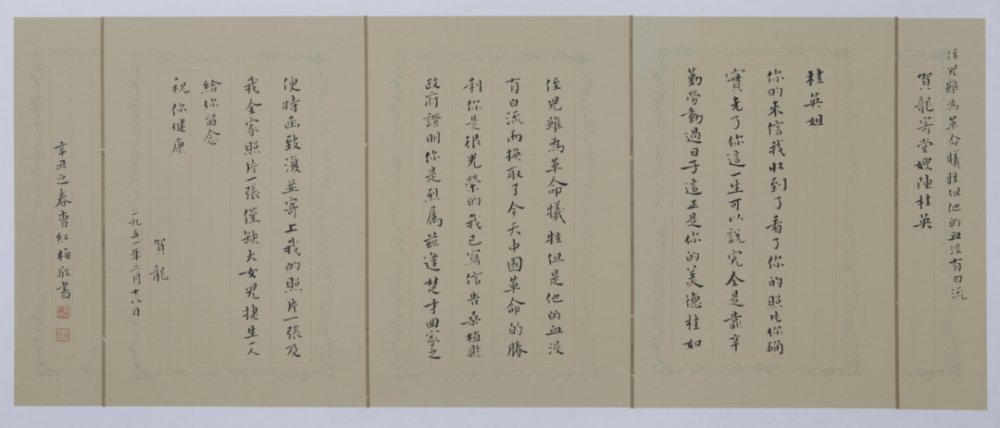 侄兒雖為革命犧牲但他的血没有白流
賀龍寄堂嫂陳桂英
桂英姐
你的来信我收到了看了你的照片你确
實老了你這一生可以説完全是靠辛
勤勞動過日子這正是你的美德桂如
侄兒雖為革命犧牲但是他的血没
有白流而换取了今天中國革命的勝
利你是很光榮的我已寫信告桑植縣
政府證明你是烈属兹逢楚才回家之
便特函致復並寄上我的照片一張及
我全家照片一張僅缺大女兒捷生一人
給你留念
祝你健康
賀龍
一九五一年二月十八日
辛丑之春曹紅梅敬書